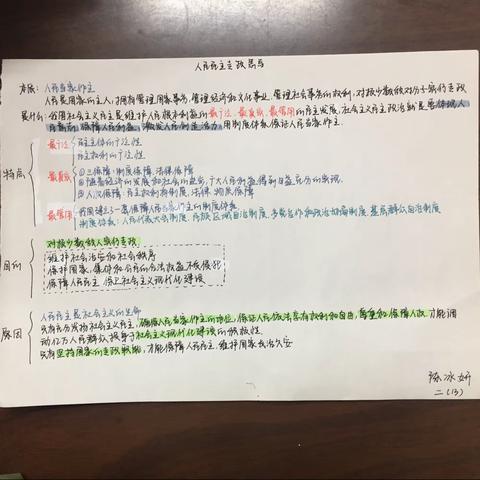 人民民主专政思想
本质: 人民当家作主
人民是国家的主人, 拥有管理国家事务, 管理经济和文化事业, 管理社会事务的权利, 对极少数敌对分子实行专政
是什么: 我国社会主义民主是维护人民根本利益的最广泛、最真实、最管用的民主发展, 社会主义民主政治就是要体现人
民意志, 保障人民利益, 激发人民创造活力, 用制度体系保证人民当家作主.
特点
最广泛
民主主体的广泛性
民主权利的广泛性
最真实
①三保障: 制度保障, 法律保障
②随着经济的发展和社会的进步, 广大人民利益得到日益充分的实现.
③人权保障: 民主权利有制度、法律、物质保障
最管用
我国建立了一套保障人民当家作主的制度体系
制度体系: 人民代表大会制度、民族区域自治制度、多党合作和政治协商制度、基层群众自治制度
目的
对极少数敌人实行专政
维护社会治安和社会秩序
保护国家、集体和公民的合法权益不被侵犯
保障人民民主, 促进社会主义现代化建设
原因
人民民主是社会主义的生命
只有充分发扬社会主义民主, 确保人民当家作主的地位, 保证人民依法享有权利和自由, 尊重和保障人权, 才能调
动亿万人民群众投身于社会主义现代化建设的积极性
只有坚持国家的专政职能, 才能保障人民民主, 维护国家长治久安
陈冰妍
二(13)